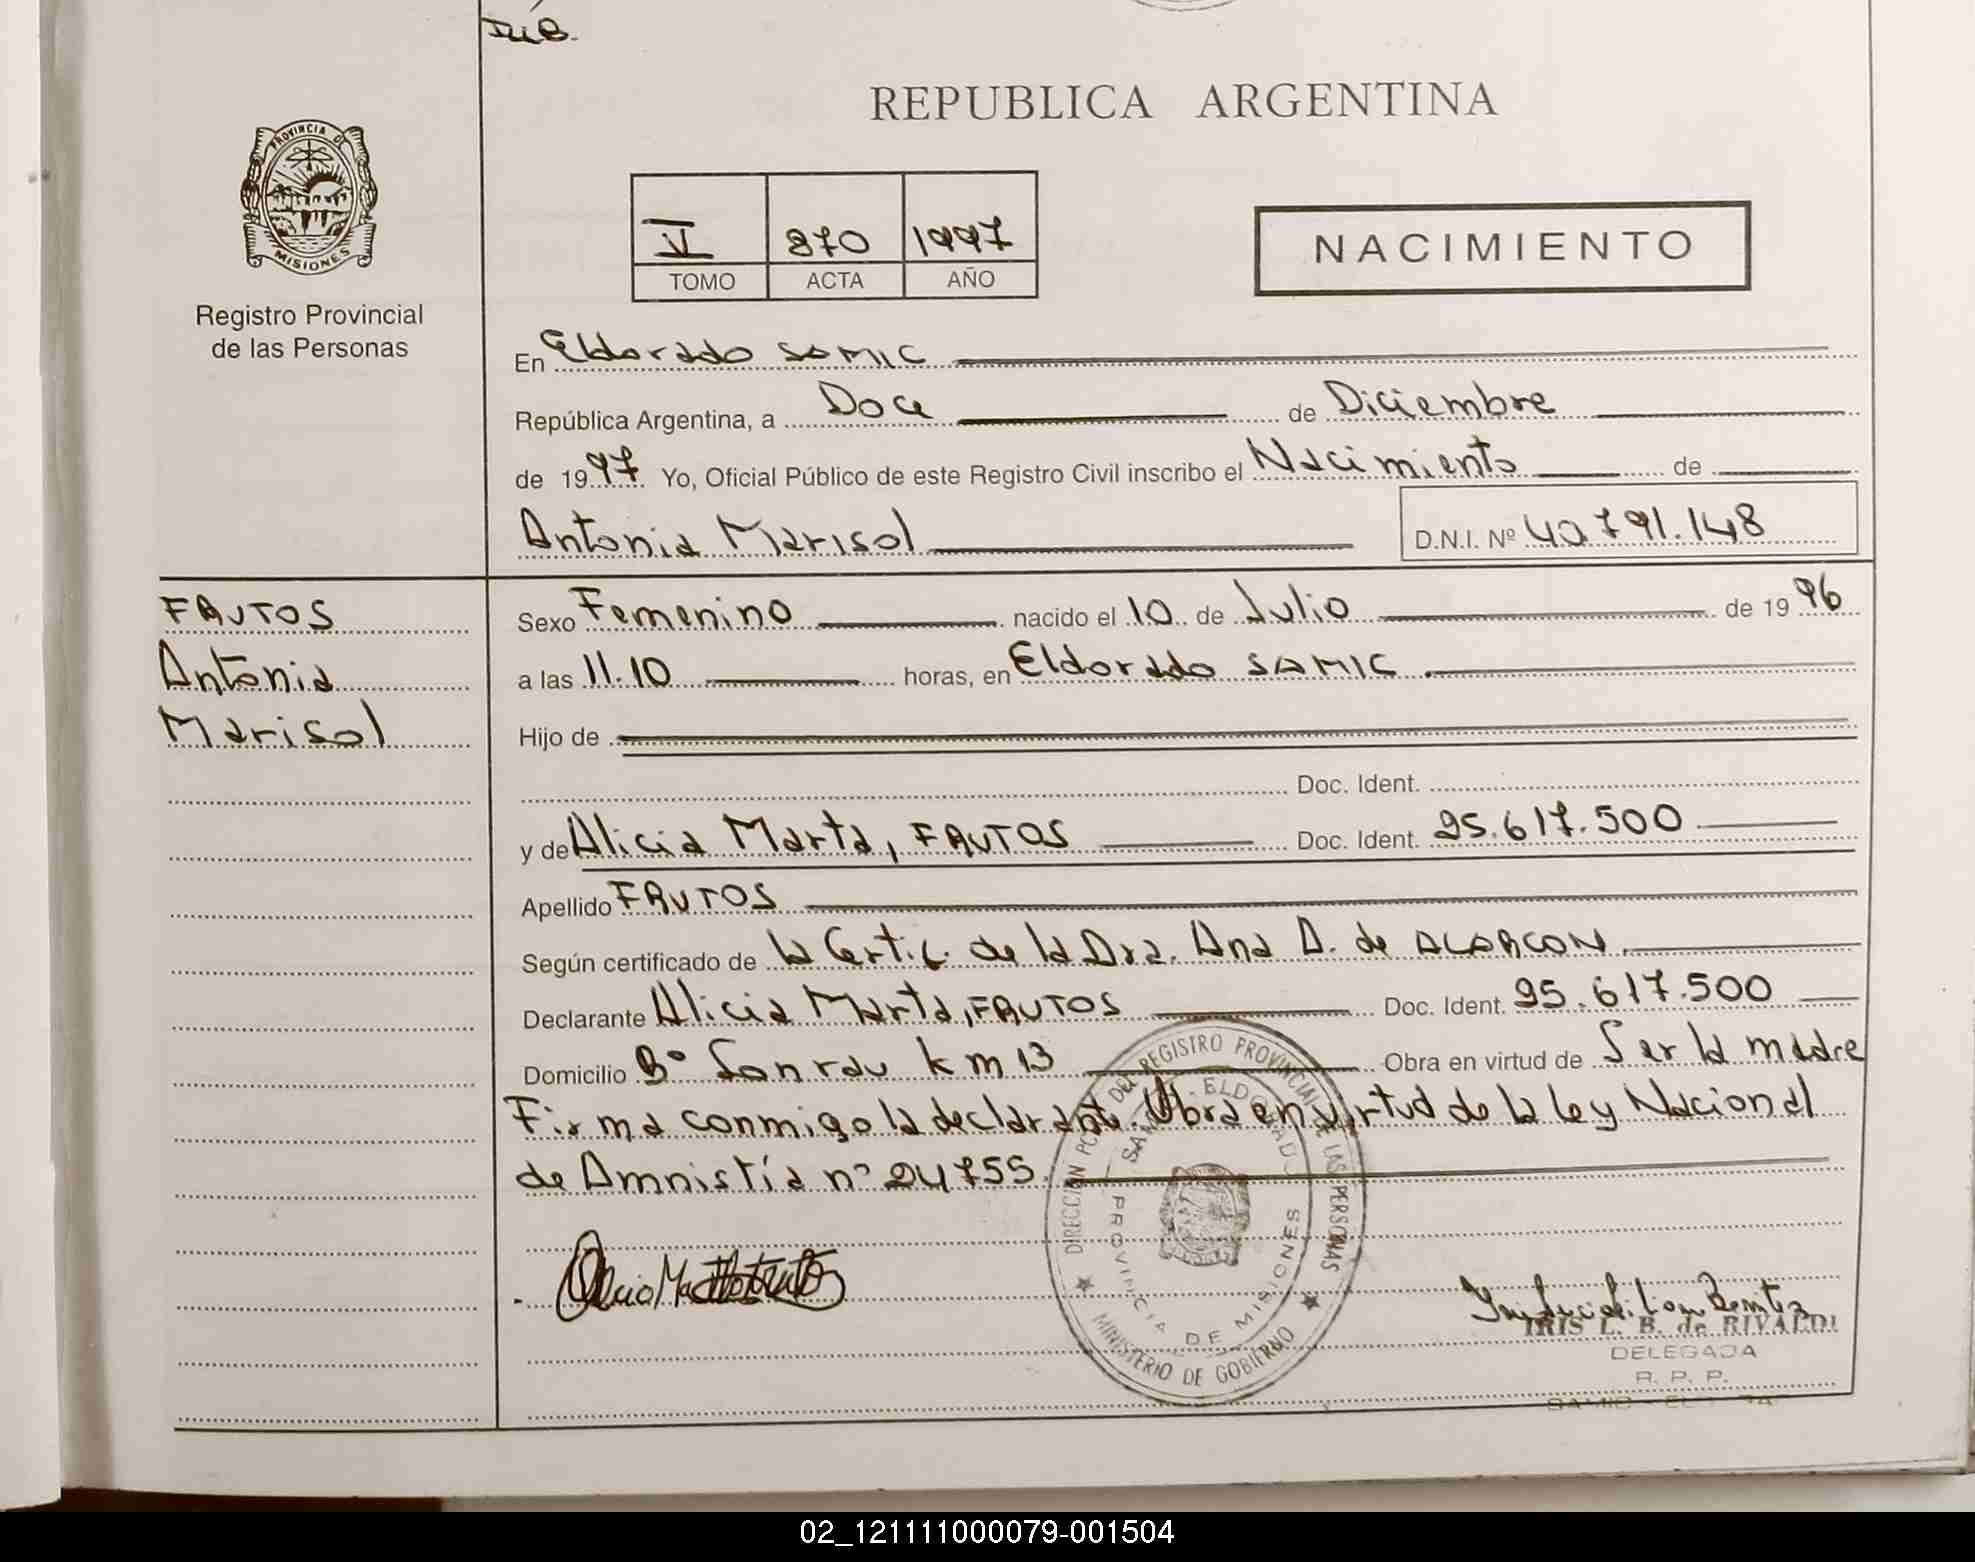 REPUBLICA ARGENTINA
PROVINCIA DE
MISIONES
Registro Provincial
de las Personas
V 870 1997
TOMO ACTA AÑO
NACIMIENTO
En Eldorado SAMIC
República Argentina, a Doce de Diciembre
de 1997 Yo, Oficial Público de este Registro Civil inscribo el Nacimiento de
Antonia Marisol D.N.I. Nº 40.791.148
FRUTOS
Antonia
Marisol
Sexo Femenino nacido el 10 de Julio de 1996
a las 11.10 horas, en Eldorado SAMIC
Hijo de
Doc. Ident.
y de Alicia Marta, FRUTOS Doc. Ident. 25.617.500
Apellido FRUTOS
Según certificado de la Certif. de la Dra. Ana A. de ALARCON
Declarante Alicia Marta, FRUTOS Doc. Ident. 25.617.500
Domicilio Bº km 13 Obra en virtud de Ser la madre
Firma conmigo la declarante. Obra en virtud de la ley Nacional
de Amnistía nº 24755.
DIRECCION DEL REGISTRO PROVINCIAL DE LAS PERSONAS
SAMIC ELDORADO
PROVINCIA DE MISIONES
MINISTERIO DE GOBIERNO
IRIS L. B. de RIVALDI
DELEGADA
R. P. P.
02_121111000079-001504